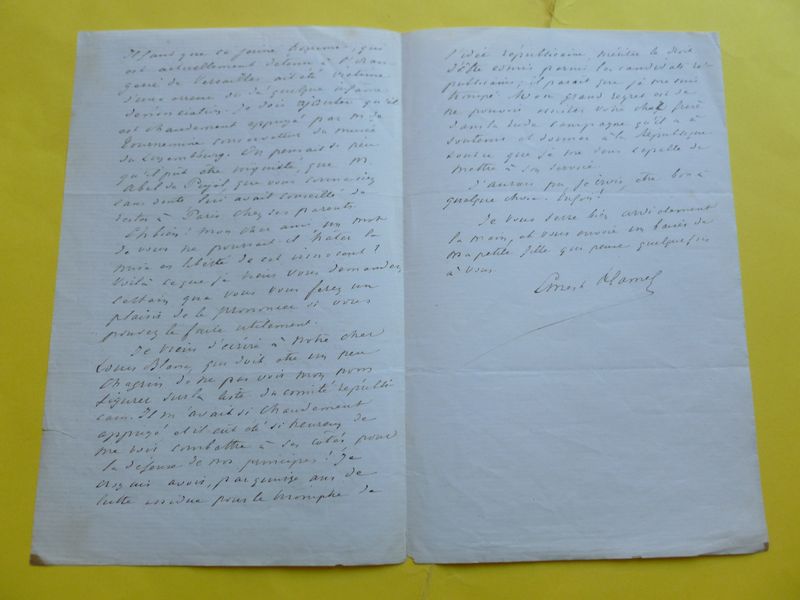 Il faut que ce jeune homme, qui
est actuellement détenu à l'Oran-
gerie de Versailles ait été victime
d'une erreur ou de quelque infâme
dénonciation. Je dois ajouter qu'il
est chaudement appuyé par M. de
Tournemine conservateur du musée
du Luxembourg. On pensait si peu
qu'il pût être inquiété, que M.
Abel de Pujol, que vous connaissez
sans doute, lui avait conseillé de
rester à Paris chez ses parents.
Eh bien! mon cher ami un mot
de vous ne pourrait-il hâter la
mise en liberté de cet innocent?
Voilà ce que je viens vous demander,
certain que vous vous ferez un
plaisir de le prononcer si vous
pouvez le faire utilement.
Je viens d'écrire à notre cher
Louis Blanc, qui doit être un peu
chagrin de ne pas voir mon nom
figurer sur la liste du comité républi
cain. Il m'avait si chaudement
appuyé et il eut été si heureux de
me voir combattre à ses côtés pour
la défense de nos principes! Je
croyais avoir, par quinze ans de
lutte assidue pour le triomphe de
l'idée républicaine, mérité le droit
d'être compris parmi les candidats ré-
publicains; il paraît que je me suis
trompé. Mon grand regret est de
ne pouvoir assister votre cher frère
dans la rude campagne qu'il a à
soutenir et donner à la République
tout ce que je me sens capable de
mettre à son service.
J'aurais pu, je crois, être bon à
quelque chose. Enfin!
Je vous serre bien cordialement
la main, et vous envoie un baiser de
ma petite fille qui pense quelquefois
à vous.
Ernest Hamel